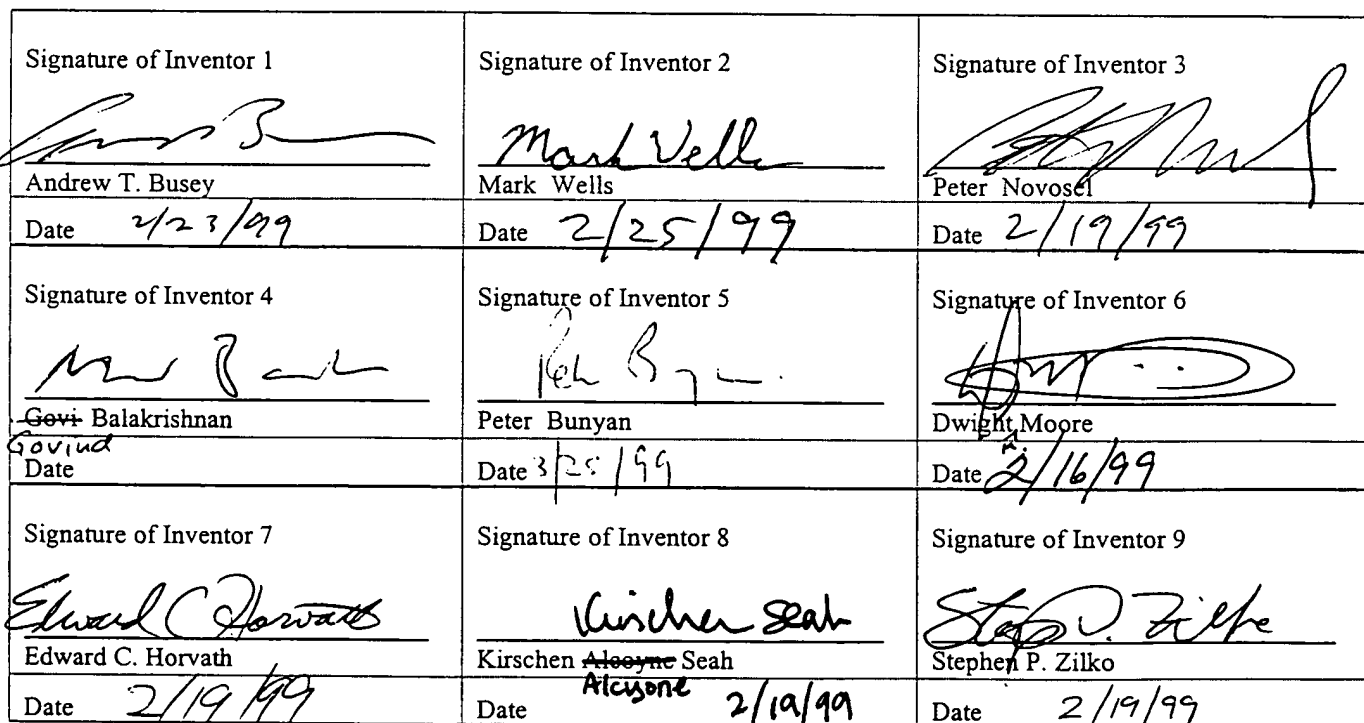 Signature of Inventor 1
Signature of Inventor 2
Signature of Inventor 3
Mark Wells
Andrew T. Busey
Mark Wells
Peter Novosel
Date 2/23/99
Date 2/25/99
Date 2/19/99
Signature of Inventor 4
Signature of Inventor 5
Signature of Inventor 6
Govi Balakrishnan
Govind
Peter Bunyan
Dwight Moore
Date
Date 3/25/99
Date 2/16/99
Signature of Inventor 7
Signature of Inventor 8
Signature of Inventor 9
Edward C Horvath
Kirschen Seah
Edward C. Horvath
Kirschen Alcoyne Seah
Alcyone
Stephen P. Zilko
Date 2/19/99
Date 2/19/99
Date 2/19/99